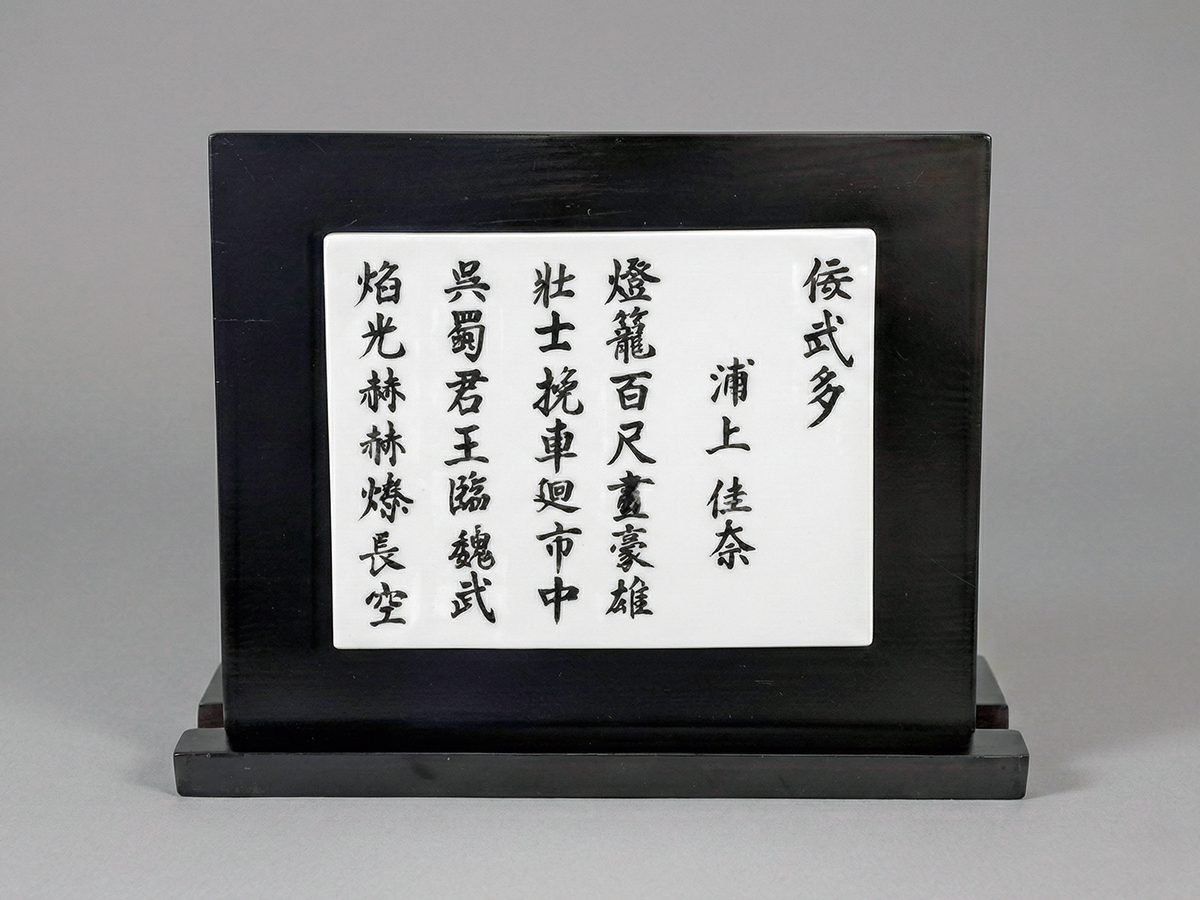 佞武多
浦上佳奈
燈籠百尺畫豪雄
壯士挽車迴市中
吳蜀君王臨魏武
焰光赫赫燎長空